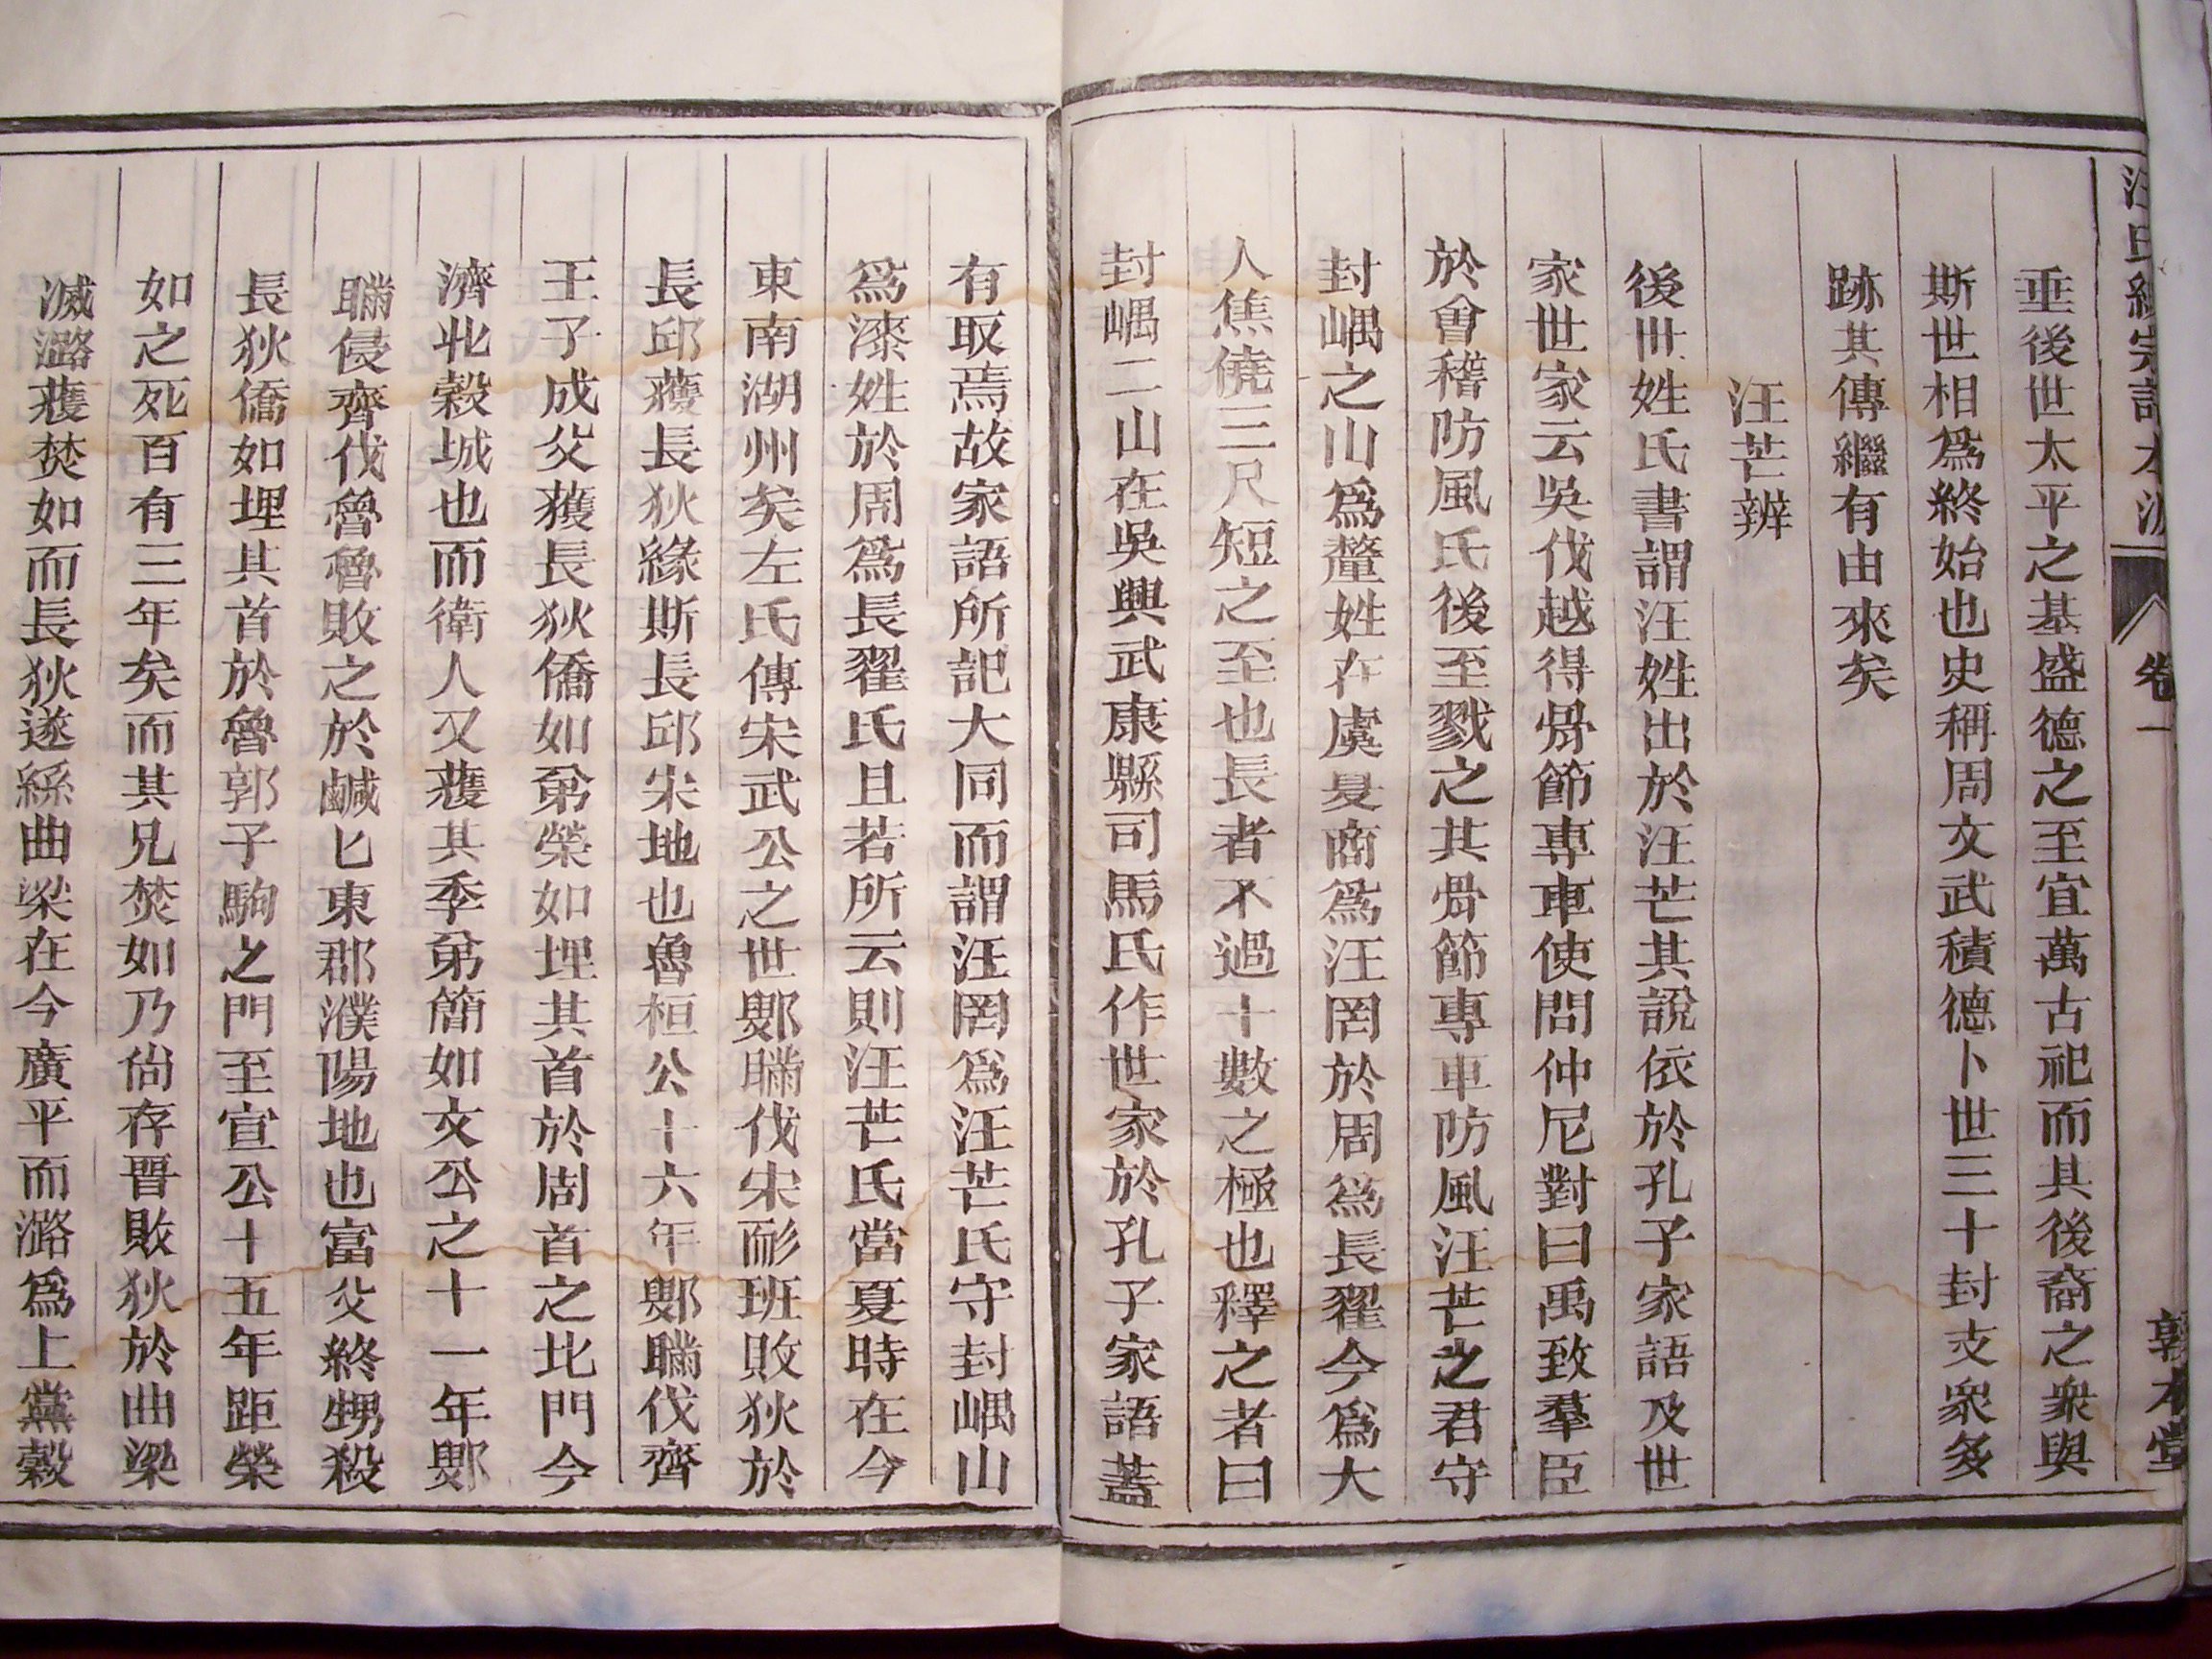 卷一
垂後世太平之基盛德之至宜萬古祀而其後裔之衆與
斯世相爲終始也史稱周文武積德卜世三十封支衆多
跡其傳繼有由來矣
汪芒辨
後世姓氏書謂汪姓出於汪芒其說依於孔子家語及世
家世家云吳伐越得骨節專車使問仲尼對曰禹致羣臣
於會稽防風氏後至戮之其骨節專車防風汪芒之君守
封嵎之山爲釐姓在虞夏商爲汪罔於周爲長翟今爲大
人焦僥三尺短之至也長者不過十數之極也釋之者曰
封嵎二山在吳興武康縣司馬氏作世家於孔子家語蓋
有取焉故家語所記大同而謂汪罔爲汪芒氏守封嵎山
爲漆姓於周爲長翟氏且若所云則汪芒氏當夏時在今
東南湖州矣左氏傳宋武公之世鄋瞞伐宋耏班敗狄於
長邱獲長狄緣斯長邱宋地也魯桓公十六年鄋瞞伐齊
王子成父獲長狄僑如弟榮如埋其首於周首之北門今
濟北穀城也而衛人又獲其季弟簡如文公之十一年鄋
瞞侵齊伐魯魯敗之於鹹匕東郡濮陽地也富父終甥殺
長狄僑如埋其首於魯郭子駒之門至宣公十五年距榮
如之死百有三年矣而其兄焚如乃尙存晋敗狄於曲梁
滅潞獲焚如而長狄遂絲曲梁在今廣平而潞爲上黨穀